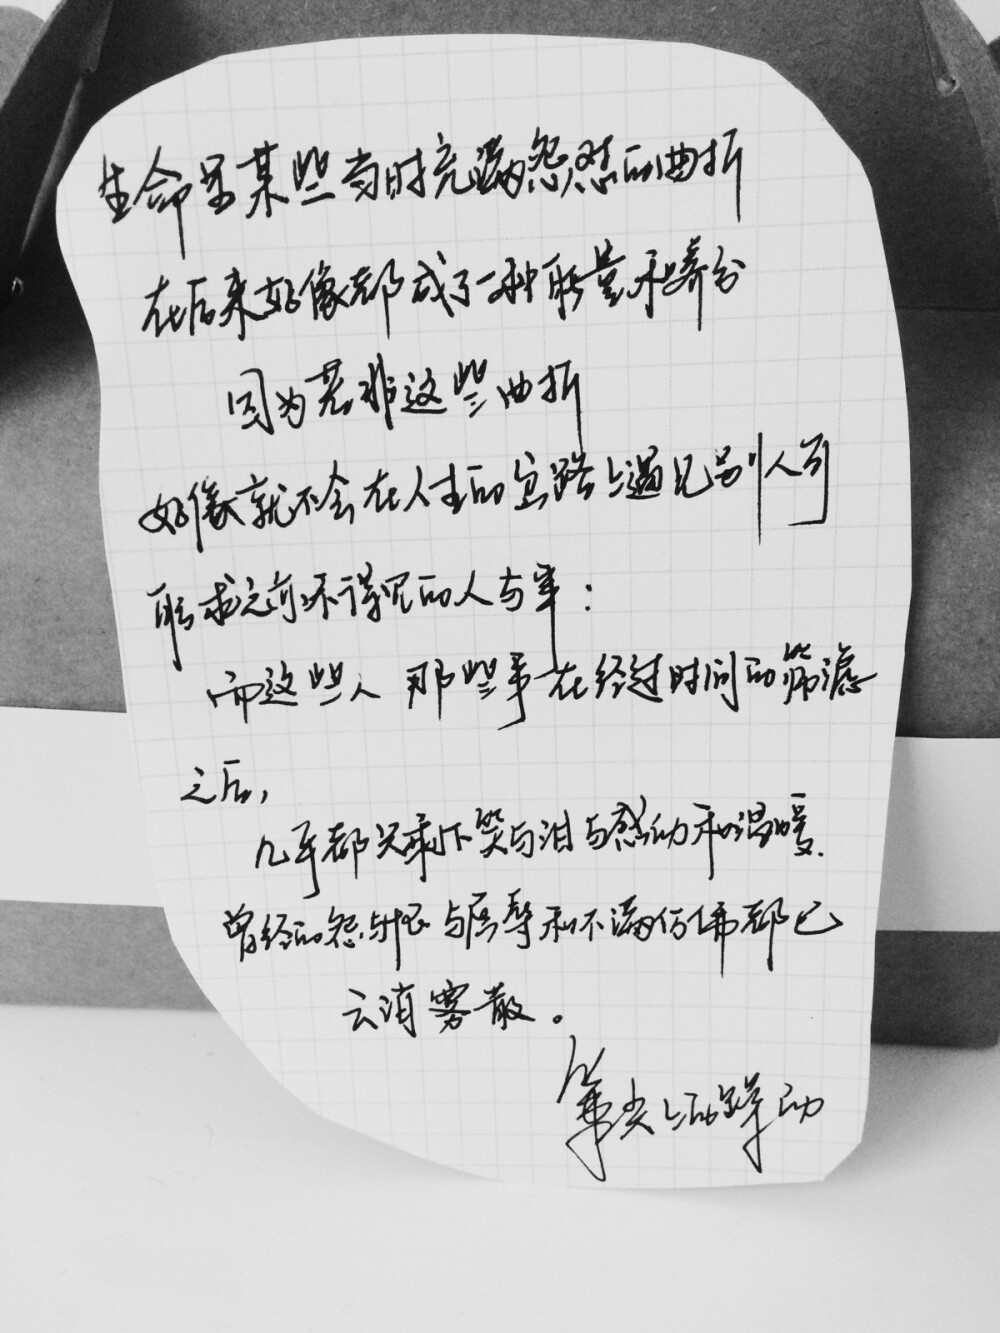 生命里某些当时充满怨怼的曲折
在后来好像都成了一种能量和养分
因为若非这些曲折
好像就不会在人生的岔路上遇见别人可
能求之而不得见的人与事：
而这些人 那些事在经过时间的筛滤
之后，
几乎都只剩下笑与泪与感动和温暖．
曾经的怨与恨与屈辱和不满仿佛都已
云消雾散。
笔尖上的跃动